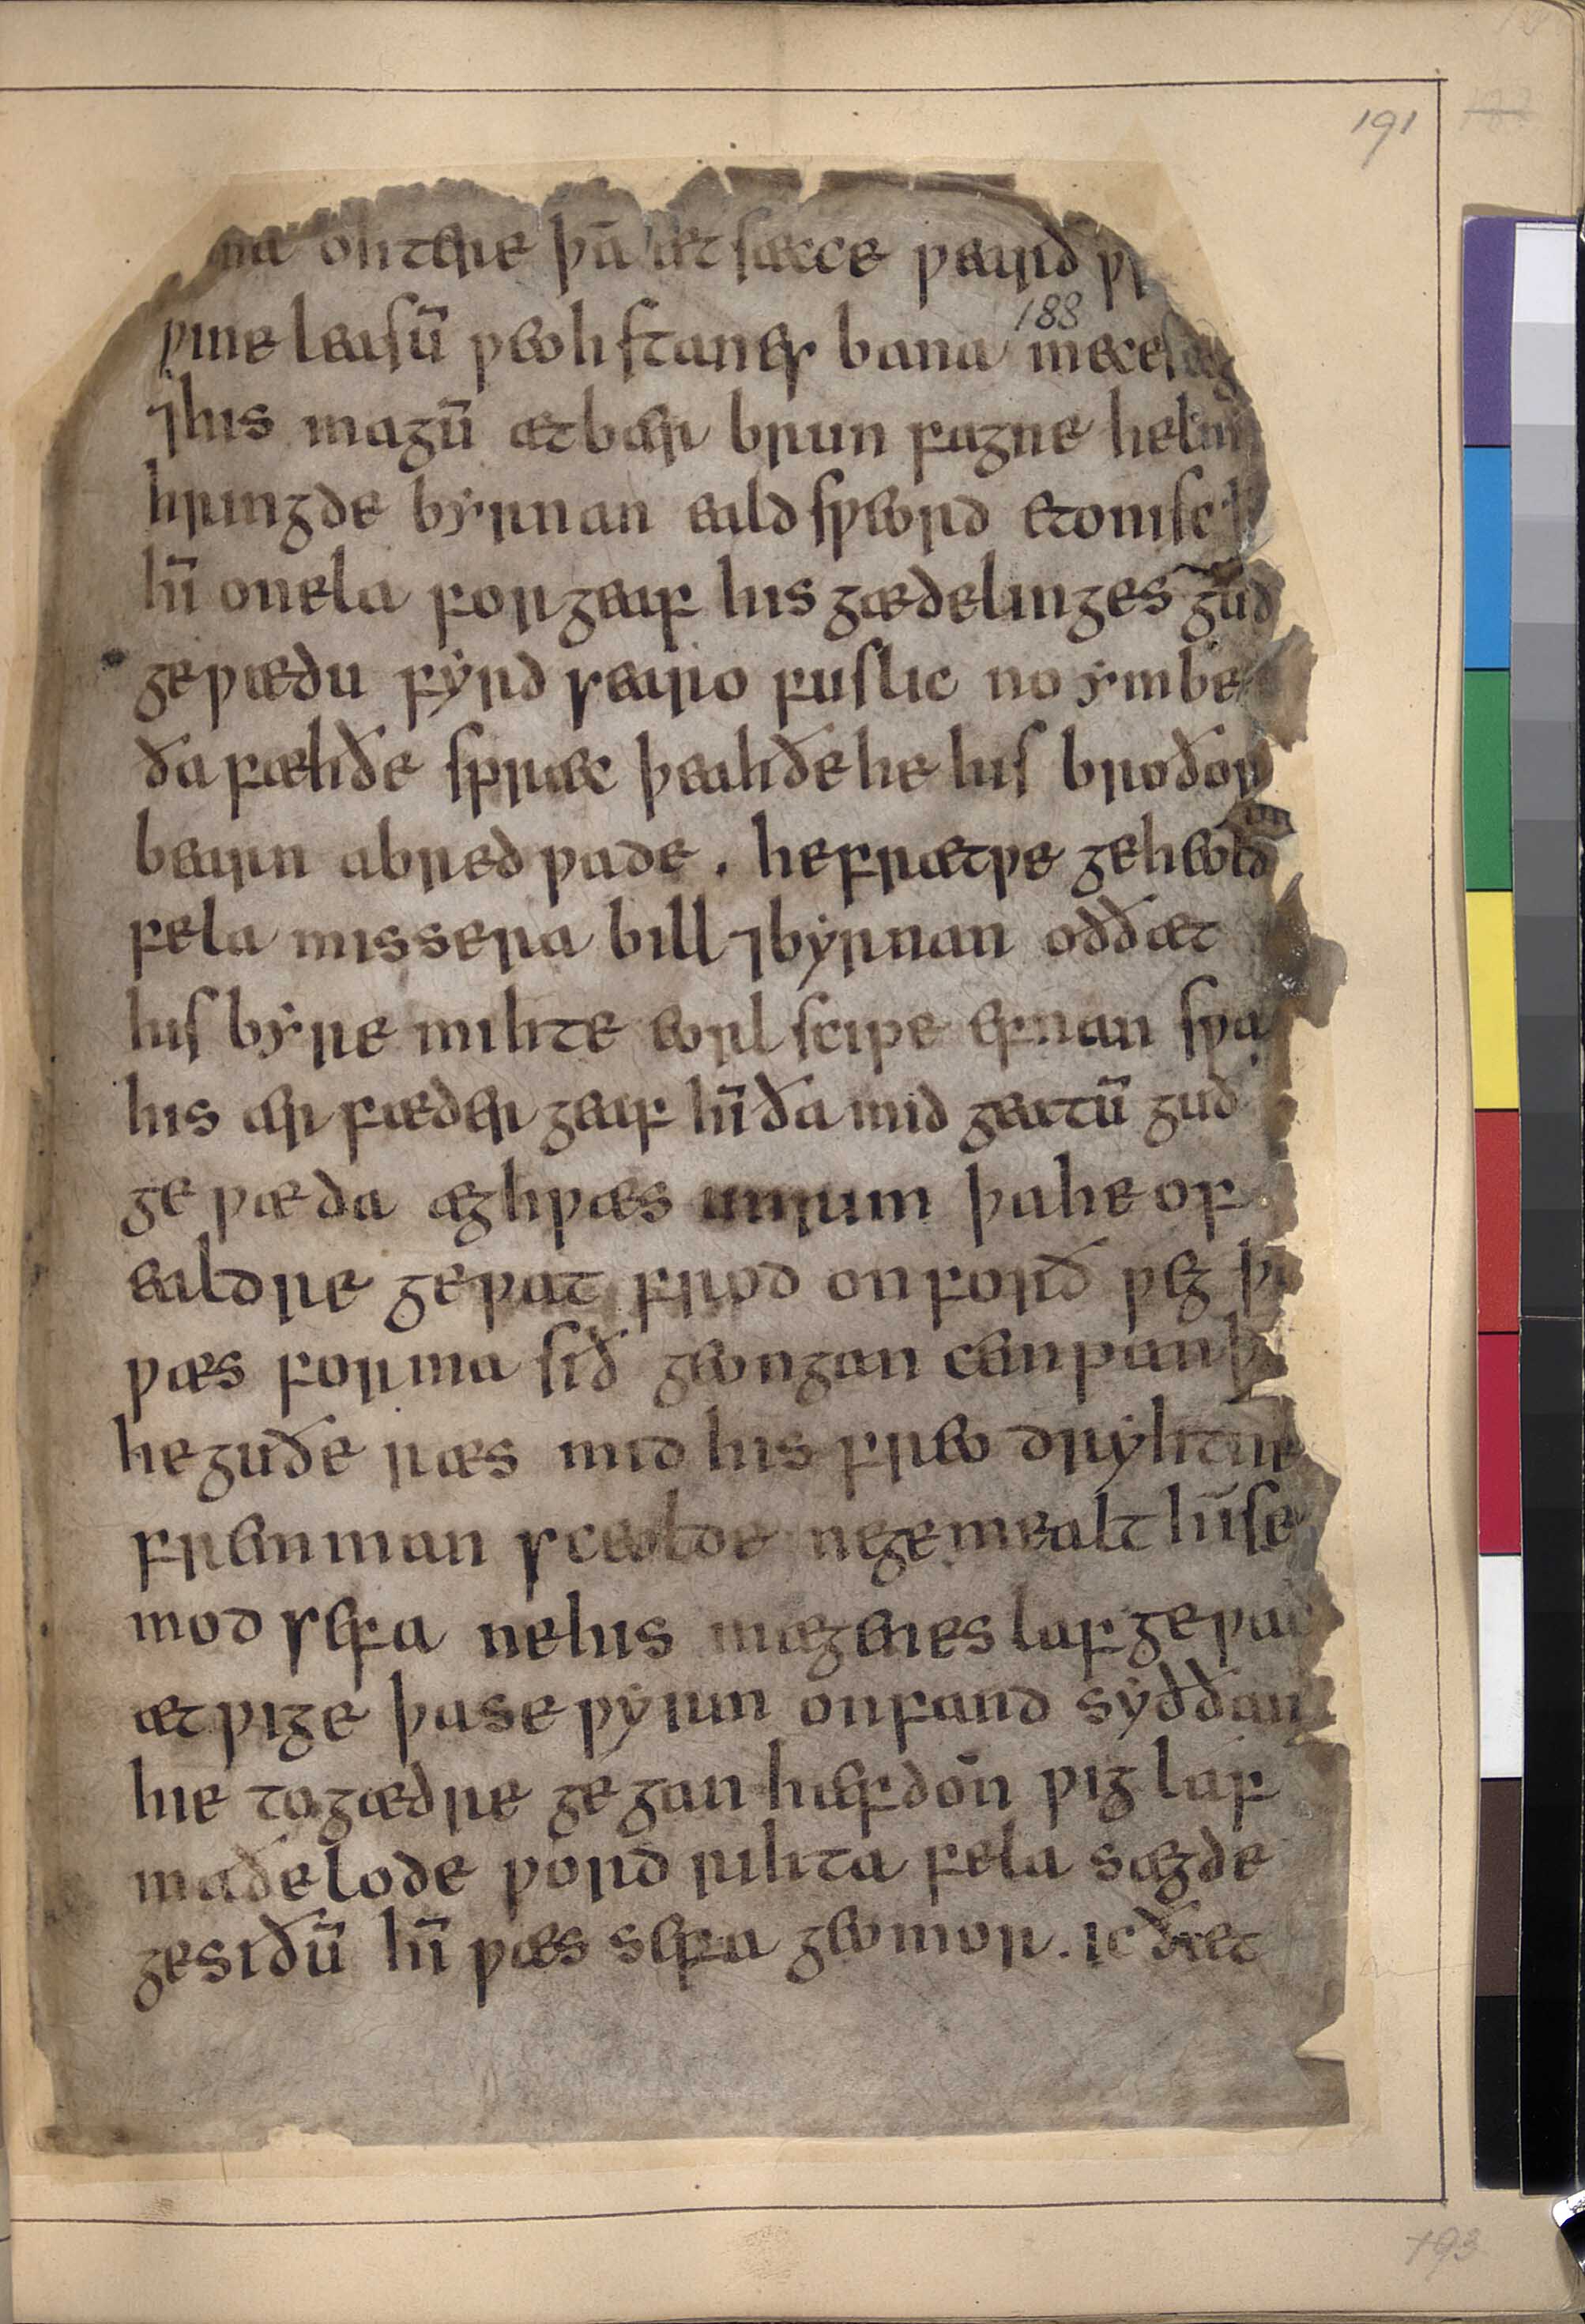 191
na ohtere þā æt sæcce pearð
188
ƿine leasū ƿeohstanes bana meces
⁊his magū ætbær brun fagne helm
hringde byrnan eald sƿeord etonisc
hī onela forgeaf his gædelinges guð
geƿædu fyrd searo fuslic no ymbe
ða fæhðe spræc þeah ðe he his broðor
bearn abredƿade . he frætƿe geheold
fela missera bill ⁊byrnan oððæt
his byrne mihte eorl scipe efnan sƿa
his ær fæder geaf hī ða mid geatū guð
geƿæda æghƿæs unrim þa he of
ealdre geƿat frod on forð ƿeg þa
ƿæs forma sið geongan cempan þ
he guðe ræs mid his freo dryhtne
fremman sceolde ne gemealt hī se
mod sefa ne his mægenes laf geƿac
æt ƿige þa se ƿyrm onfand syððan
hie togædre gegan hæfdon ƿig laf
maðelode ƿord rihta fela sægde
gesiðū hī ƿæs sefa geomor . ic ðæt
193